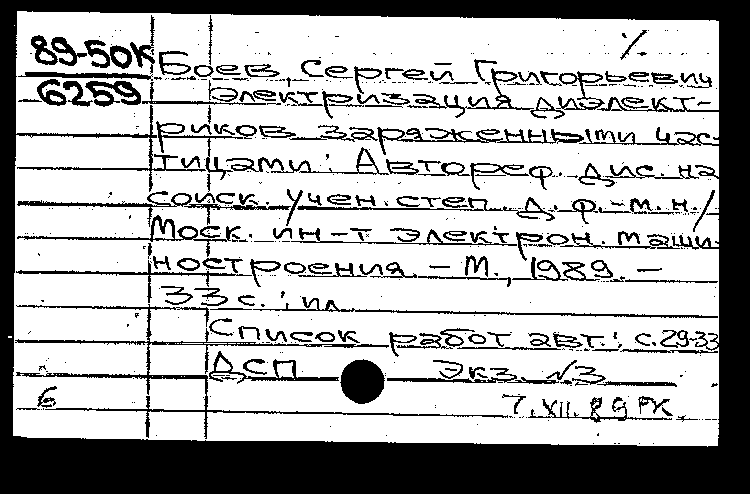 %
89-50К
6259
Боев, Сергей Григорьевич
Электризация диэлект-
риков заряженными час-
тицами: Автореф. дис. на
соиск. учен. степ. д. ф.-м. н./
Моск. ин-т электрон. маши-
ностроения. - М., 1989. -
33 с.: ил
Список работ авт.: с.29-33
ДСП Экз. №3
6 7.XII.89 РК.